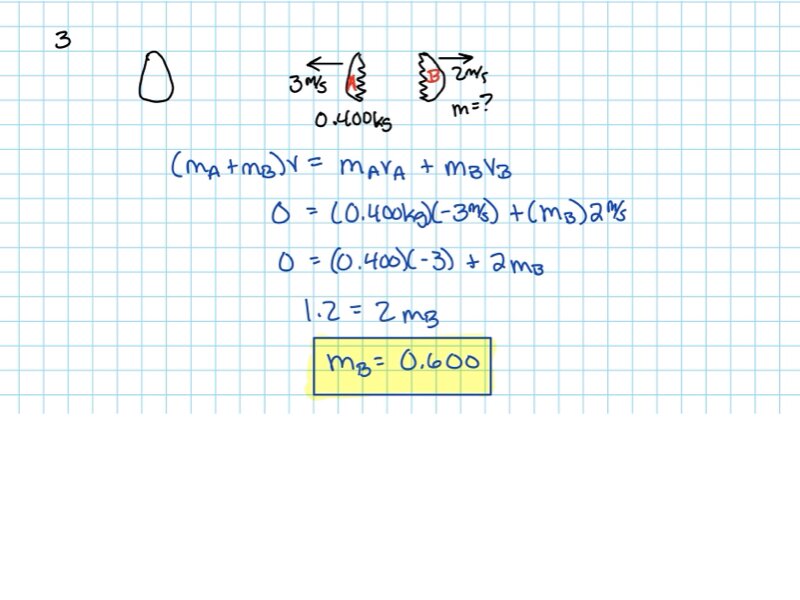 3
3 m/s A B 2 m/s
0.400kg m=?
(mA + mB)v = mAvA + mBvB
0 = (0.400kg)(-3m/s) + (mB)2 m/s
0 = (0.400)(-3) + 2mB
1.2 = 2mB
mB = 0.600